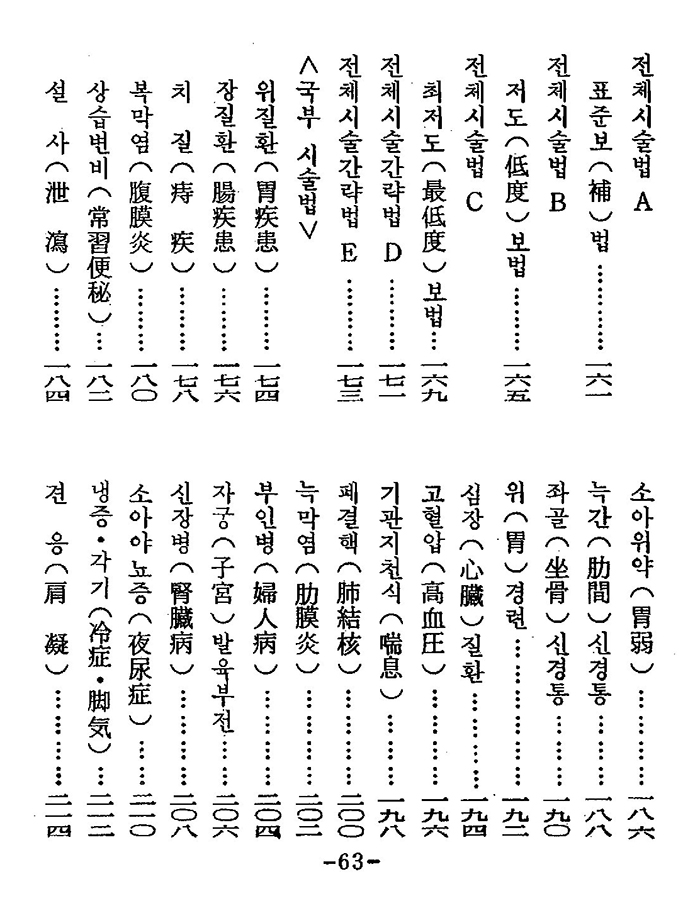 전체시술법 A
표준보(補)법…………一六一
전체시술법 B
저도(低度)보법………一六五
전체시술법 C
최저도(最低度)보법…一六九
전체시술간략법 D………一七一
전체시술간략법 E………一七三
<국부 시술법>
위질환(胃疾患)………一七四
장질환(腸疾患)………一七六
치 질(痔 疾)…………一七八
복막염(腹膜炎)………一八〇
상습변비(常習便秘)…一八二
설 사(泄 瀉)…………一八四
소아위약(胃弱)…………一八六
늑간(肋間)신경통………一八八
좌골(坐骨)신경통………一九〇
위(胃)경련………………一九二
심장(心臟)질환…………一九四
고혈압(高血圧)…………一九六
기관지천식(喘息)………一九八
폐결핵(肺結核)…………二〇〇
늑막염(肋膜炎)…………二〇二
부인병(婦人病)…………二〇四
자궁(子宮)발육부전……二〇六
신장병(腎臟病)…………二〇八
소아야뇨증(夜尿症)……二一〇
냉증・각기(冷症・脚気)…二一二
견 응(肩 凝)……………二一四
-63-